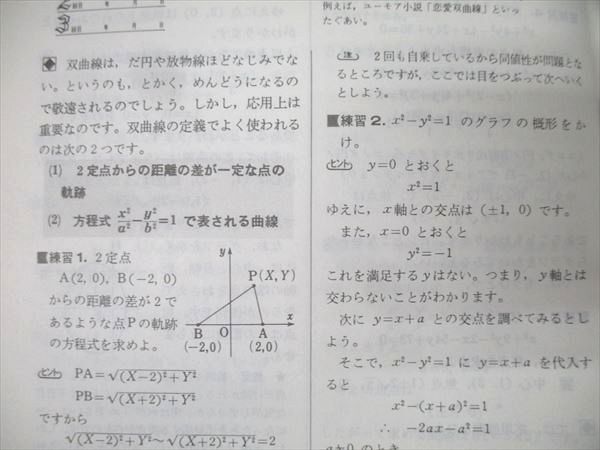 2回目 年 月 日
3回目 年 月 日
◆ 双曲線は，だ円や放物線ほどなじみでな
い。というのも，とかく，めんどうになるの
で敬遠されるのでしょう。しかし，応用上は
重要なのです。双曲線の定義でよく使われる
のは次の2つです。
(1) 2定点からの距離の差が一定な点の
軌跡
(2) 方程式 x²/a²−y²/b²=1 で表される曲線
■練習1. 2定点
A(2, 0), B(−2, 0)
からの距離の差が2で
あるような点Pの軌跡
の方程式を求めよ。
y
P(X, Y)
B O A x
(−2,0) (2,0)
ヒント PA=√(X−2)²+Y²
PB=√(X+2)²+Y²
ですから
√(X−2)²+Y²～√(X+2)²+Y²=2
例えば，ユーモア小説「恋愛双曲線」といっ
たぐあい。
注 2回も自乗しているから同値性が問題とな
るところですが，ここでは目をつぶって次へいく
としよう。
■練習2. x²−y²=1 のグラフの概形をか
け。
ヒント y=0 とおくと
x²=1
ゆえに，x軸との交点は (±1, 0) です。
また，x=0 とおくと
y²=−1
これを満足するyはない。つまり，y軸とは
交わらないことがわかります。
次に y=x+a との交点を調べてみるとし
よう。
そこで，x²−y²=1 に y=x+a を代入す
ると
x²−(x+a)²=1
∴ −2ax−a²=1
a≠0 のとき